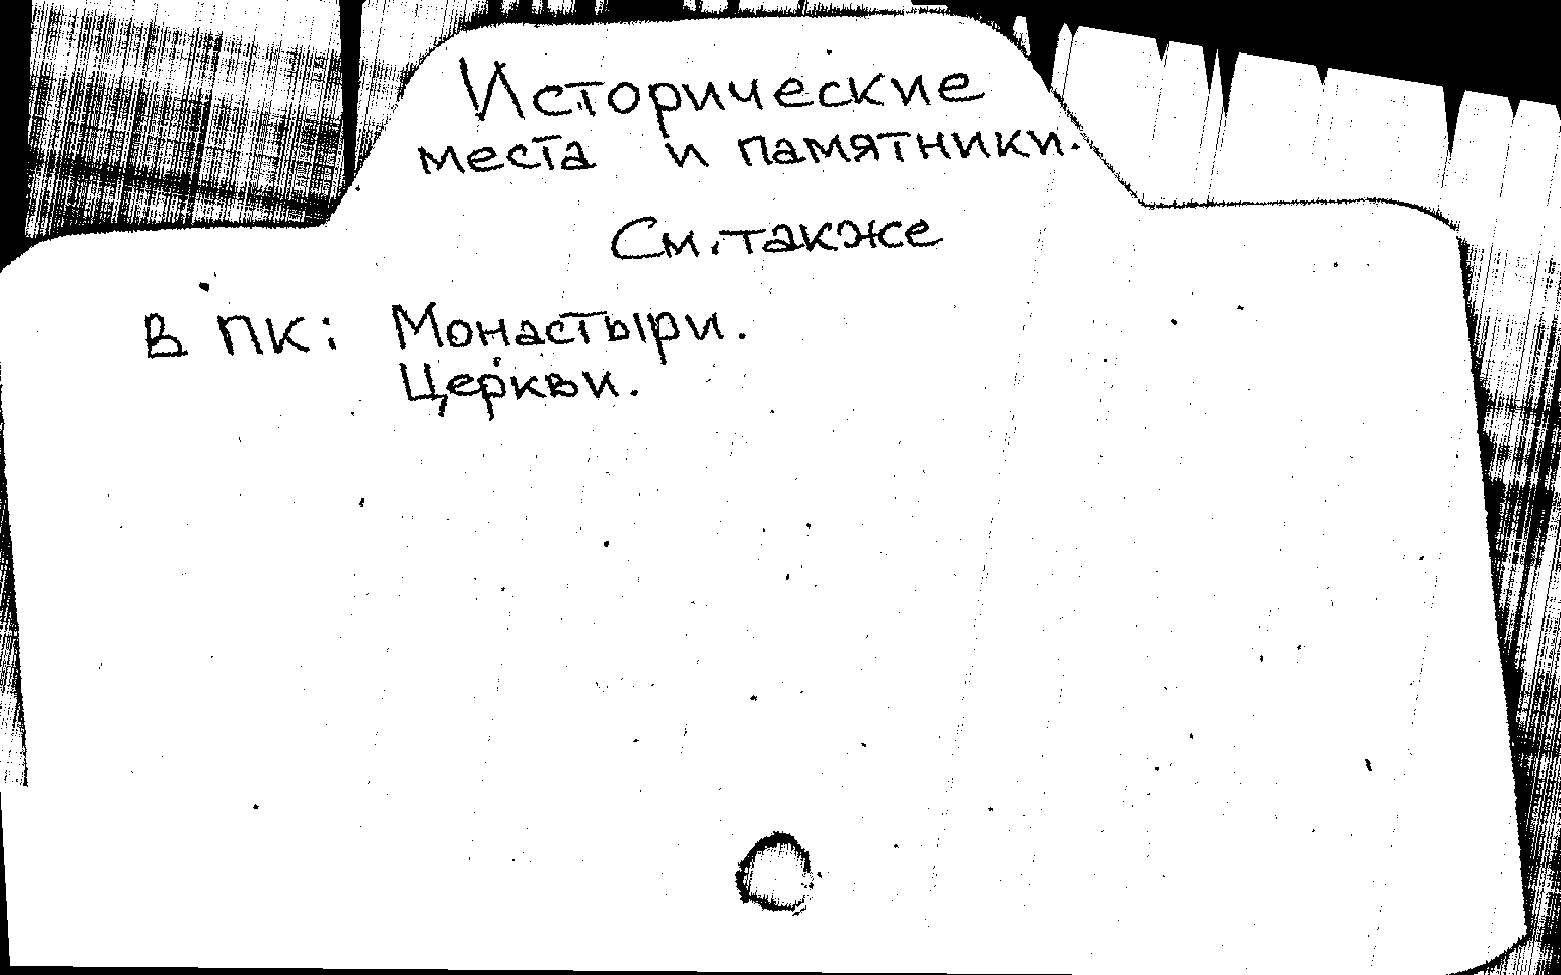 Исторические
места и памятники.
См. также
В ПК: Монастыри.
Церкви.